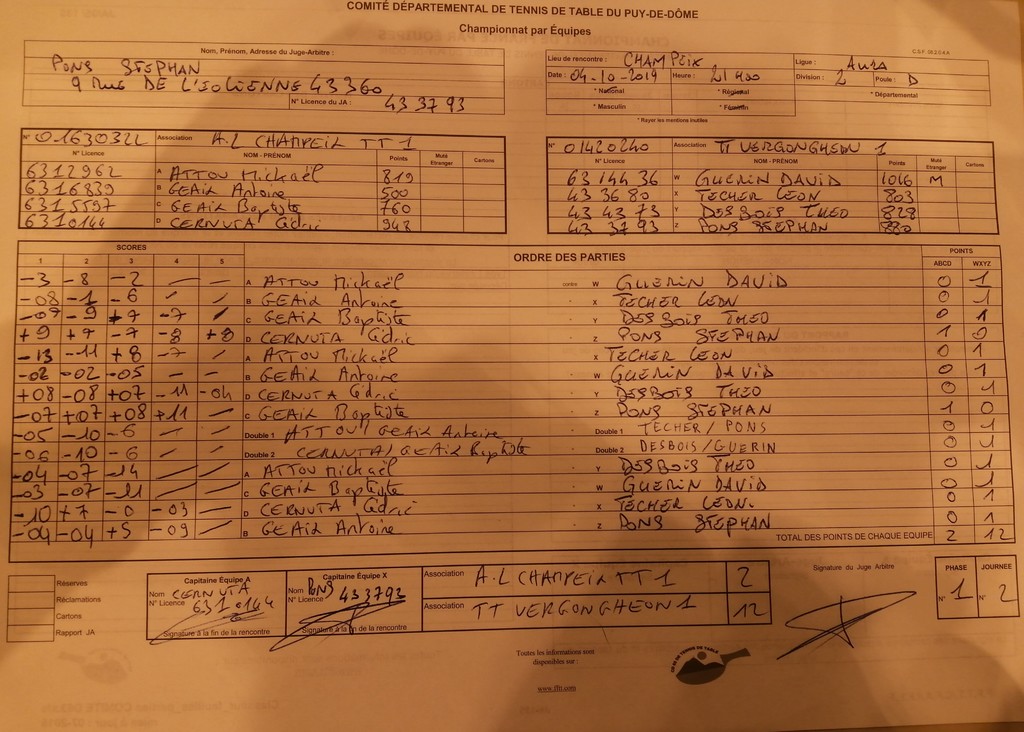 COMITÉ DÉPARTEMENTAL DE TENNIS DE TABLE DU PUY-DE-DÔME
Championnat par Équipes
Nom, Prénom, Adresse du Juge-Arbitre :
PONS STEPHAN
9 Rue DE L'EOLIENNE 43360
N° Licence du JA : 43 37 93
Lieu de rencontre : CHAMPEIX Ligue : AURA
Date : 04-10-2019 Heure : 21h00 Division : 2 Poule : D
* National * Régional * Départemental
* Masculin * Féminin
* Rayer les mentions inutiles
N° 01630322 Association A.L CHAMPEIX TT 1
N° Licence NOM - PRÉNOM Points Muté Etranger Cartons
6312962 A ATTOU Mickaël 819
6316839 B GEAIX Antoine 500
6315597 C GEAIX Baptiste 760
6310144 D CERNUTA Cédric 942
N° 01420240 Association TT VERGONGHEON 1
N° Licence NOM - PRÉNOM Points Muté Etranger Cartons
63 144 36 W GUERIN DAVID 1016 M
43 36 80 X TECHER LEON 803
43 43 73 Y DESBOIS THEO 828
43 37 93 Z PONS STEPHAN 880
SCORES ORDRE DES PARTIES POINTS
1 2 3 4 5 ABCD WXYZ
-3 -8 -2 A ATTOU Mickaël contre W GUERIN DAVID 0 1
-08 -1 -6 B GEAIX Antoine X TECHER LEON 0 1
-07 -9 +7 -7 C GEAIX Baptiste Y DESBOIS THEO 0 1
+9 +7 -7 -8 +8 D CERNUTA Cédric Z PONS STEPHAN 1 0
-13 -11 +8 -7 A ATTOU Mickaël X TECHER LEON 0 1
-02 -02 -05 B GEAIX Antoine W GUERIN DAVID 0 1
+08 -08 +07 -11 -04 D CERNUTA Cédric Y DESBOIS THEO 0 1
-07 +07 +08 +11 C GEAIX Baptiste Z PONS STEPHAN 1 0
-05 -10 -6 Double 1 ATTOU / GEAIX Antoine Double 1 TECHER / PONS 0 1
-06 -10 -6 Double 2 CERNUTA / GEAIX Baptiste Double 2 DESBOIS / GUERIN 0 1
-04 -07 -14 A ATTOU Mickaël Y DESBOIS THEO 0 1
-03 -07 -11 C GEAIX Baptiste W GUERIN DAVID 0 1
-10 +7 -0 -03 D CERNUTA Cédric X TECHER LEON. 0 1
-04 -04 +5 -09 B GEAIX Antoine Z PONS STEPHAN 0 1
TOTAL DES POINTS DE CHAQUE EQUIPE 2 12
Réserves
Réclamations
Cartons
Rapport JA
Capitaine Équipe A
Nom CERNUTA
N° Licence 6310144
Signature à la fin de la rencontre
Capitaine Équipe X
Nom PONS
N° Licence 433793
Signature à la fin de la rencontre
Association A.L CHAMPEIX TT 1 2
Association TT VERGONGHEON 1 12
Signature du Juge Arbitre
PHASE JOURNEE
N° 1 N° 2
Toutes les informations sont
disponibles sur :
www.fftt.com